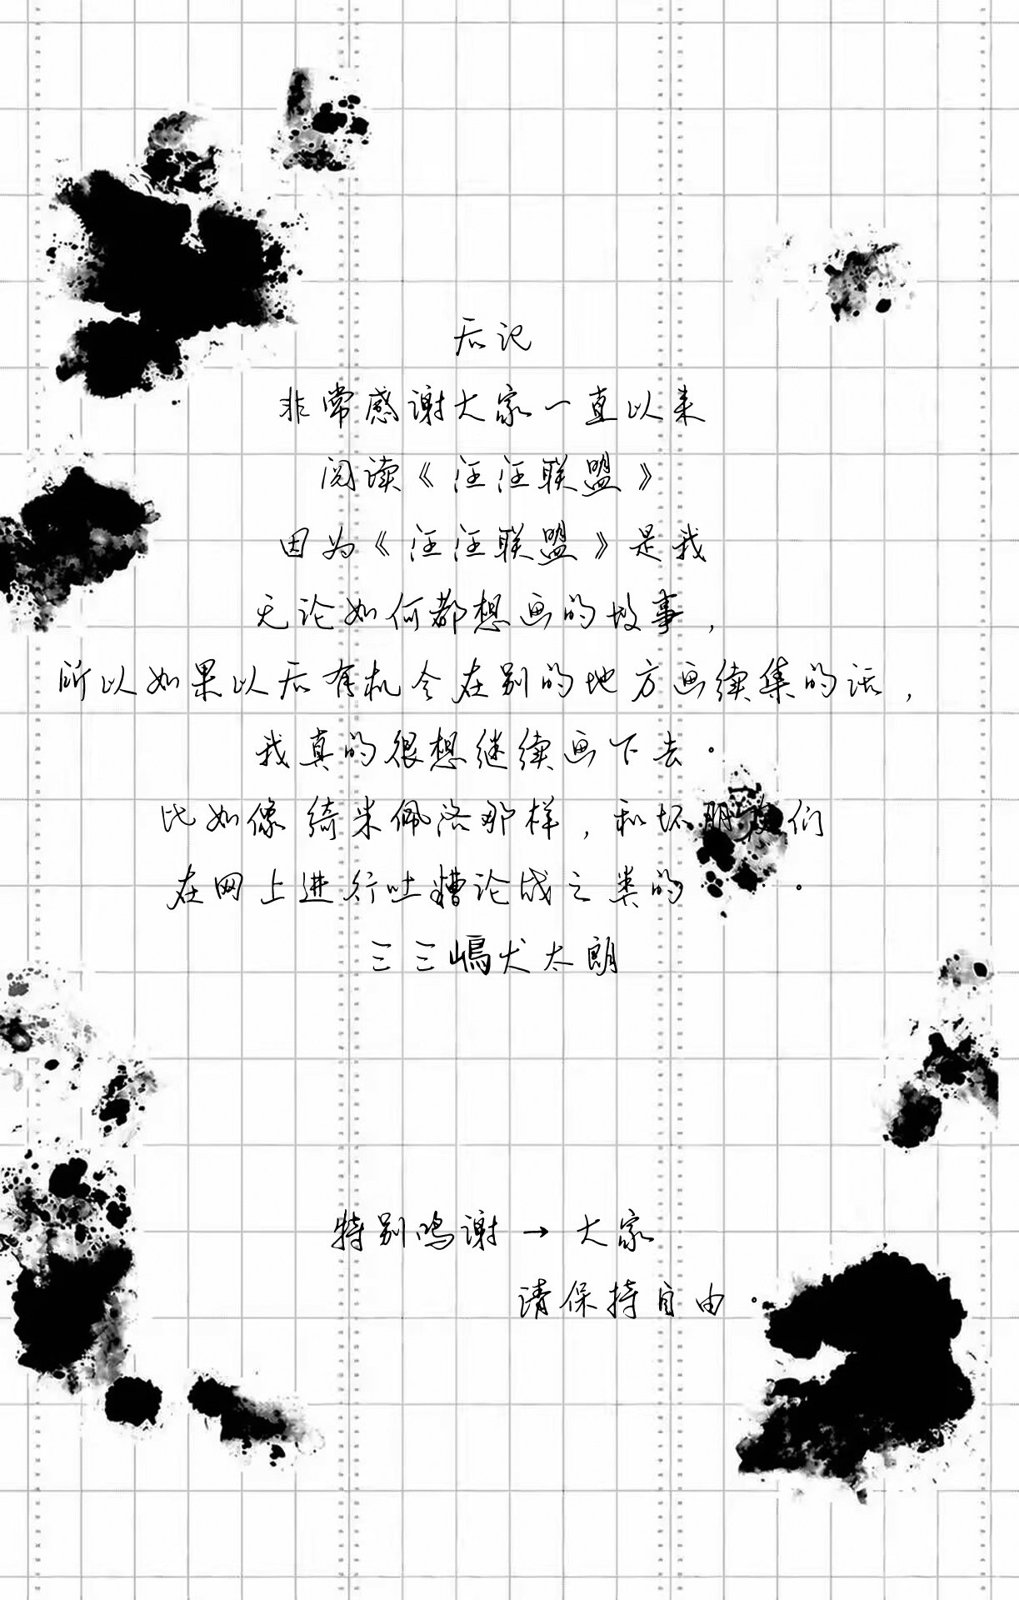 后记
非常感谢大家一直以来
阅读《汪汪联盟》
因为《汪汪联盟》是我
无论如何都想画的故事，
所以如果以后有机会在别的地方画续集的话，
我真的很想继续画下去。
比如像绮米佩洛那样，和坏朋友们
在网上进行吐槽论战之类的
三三嶋犬太朗
特别鸣谢→大家
请保持自由。